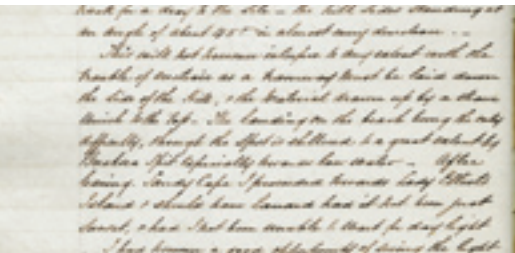 back for a day to the site – the hill sides standing at
an angle of about 45° in almost every direction . –
This will not however interfere to any extent with the
of as a tramway must be laid down
the side of the Hill, & the material drawn up by a steam
Winch to the top. The landing on the beach being the only
difficulty, through the Spit is sheltered to a great extent by
Spit especially towards low water – After
leaving Sandy Cape I proceeded towards Lady Elliott's
Island & should have had it not been just
Sunset, & had I not been unable to wait for day light
I had however a good opportunity of seeing the light